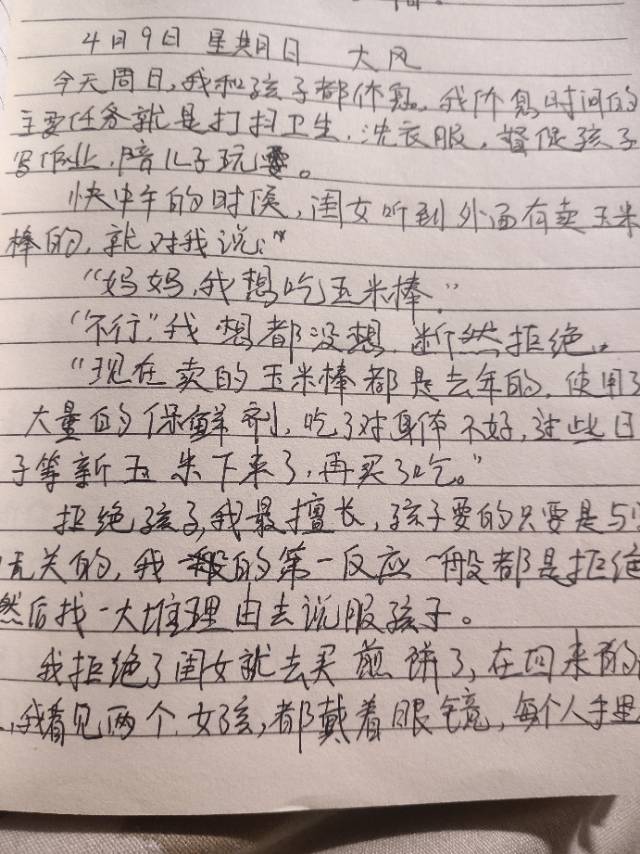 4月9日 星期日 大风
今天周日,我和孩子都休息。我休息时间的
主要任务就是打扫卫生.洗衣服,督促孩子
写作业.陪儿子玩耍。
快中午的时候,闺女听到外面有卖玉米
棒的,就对我说:"
"妈妈,我想吃玉米棒."
"不行",我想都没想.断然拒绝。
"现在卖的玉米棒都是去年的,使用了
大量的保鲜剂,吃了对身体不好,过些日
子等新玉米下来了,再买了吃。"
拒绝孩子,我最擅长,孩子要的只要是与
无关的,我一般的第一反应一般都是拒绝
然后找一大堆理由去说服孩子。
我拒绝了闺女就去买煎饼了,在回来的
,我看见两个女孩,都戴着眼镜,每个人手里